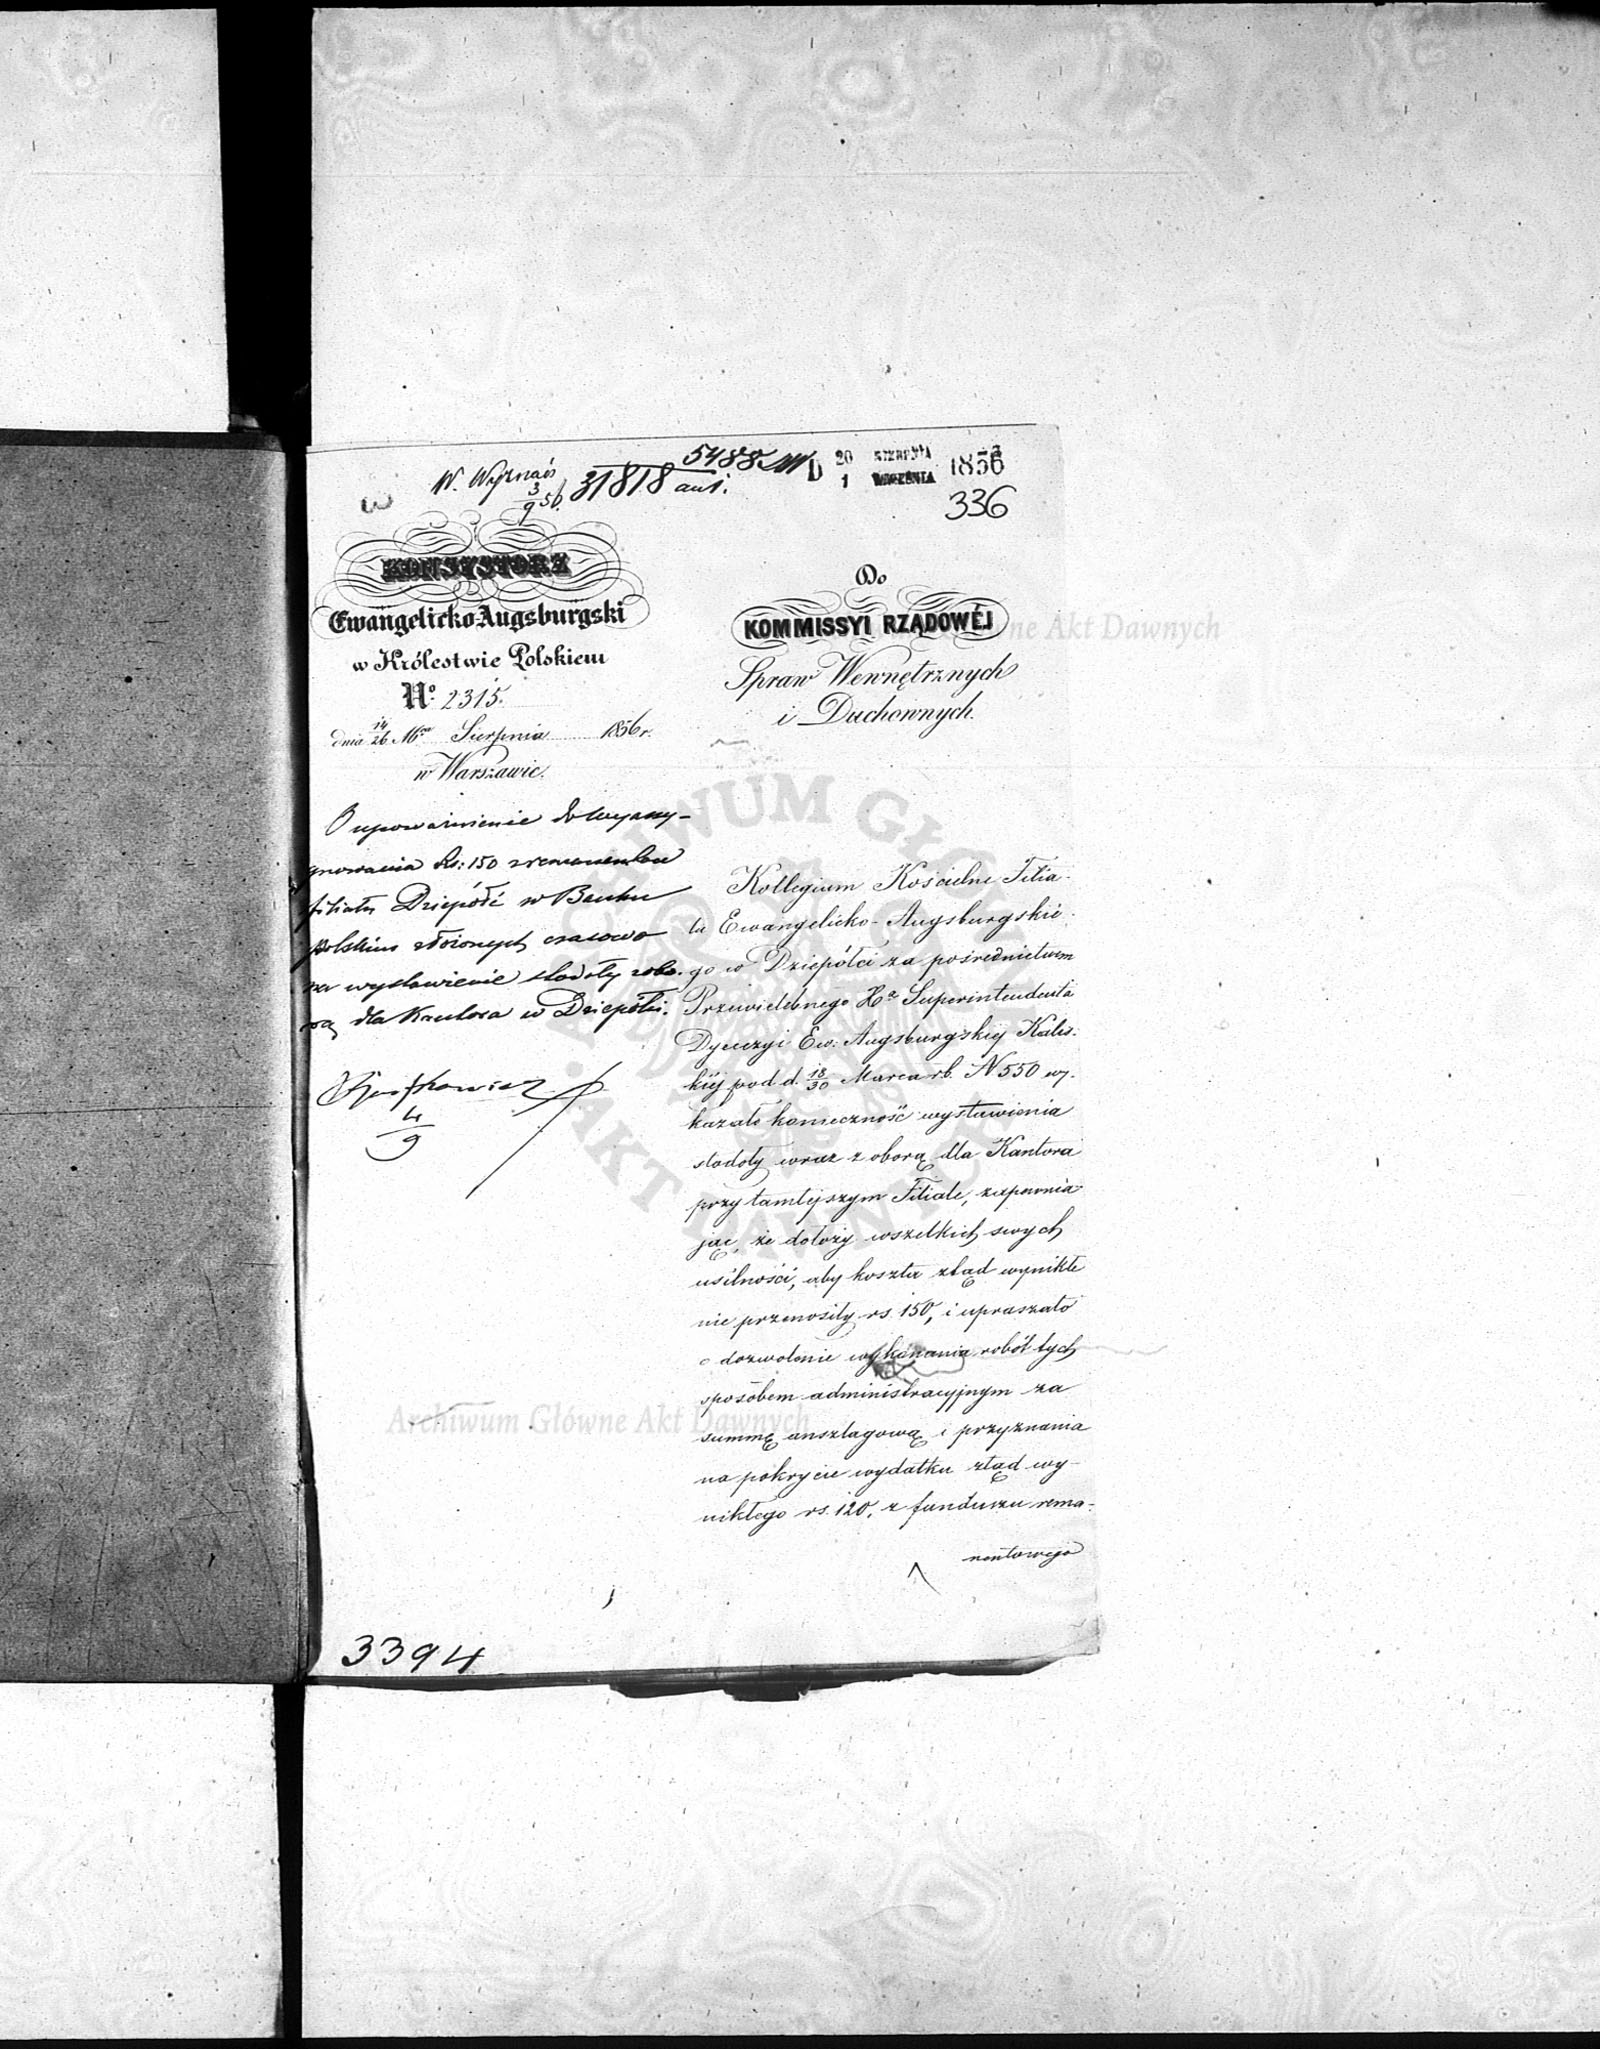 W. Wyznań
3/9 56.
31818
5488
ant.
D 20 SIERPNIA 1856
1 WRZEŚNIA
336
KONSYSTORZ
Ewangelicko-Augsburgski
w Królestwie Polskiem
No. 2315.
dnia 14/26 Mca Sierpnia 1856 r.
w Warszawie.
O upoważnienie do wyassy-
gnowania Rs: 150 z remanentu
filiału Dziepółć w Banku
Polskim złożonych czasowo
na wystawienie stodoły
dla Kantora w Dziepółci.
4/9
Do
KOMMISSYI RZĄDOWÉJ
Spraw Wewnętrznych
i Duchownych.
Kollegium Kościelne Filia-
łu Ewangelicko-Augsburgskie-
go w Dziepółci za pośrednictwem
Przewielebnego Xa Superintendenta
Dyecezyi Ew: Augsburgskiej Kalis-
kiéj pod d. 18/30 Marca rb. N 550 wy-
kazało konieczność wystawienia
stodoły wraz z oborą dla Kantora
przy tamtejszym Filiale, zapewnia-
jąc, że dołoży wszelkich swych
usilności, aby koszta ztąd wynikłe
nie przenosiły rs. 150, i upraszało
o dozwolenie wykonania robót tych
sposobem administracyjnym za
summę anszlagową i przyznania
na pokrycie wydatku ztąd wy-
nikłego rs. 120, z funduszu rema-
nentowego
3394
Archiwum Główne Akt Dawnych